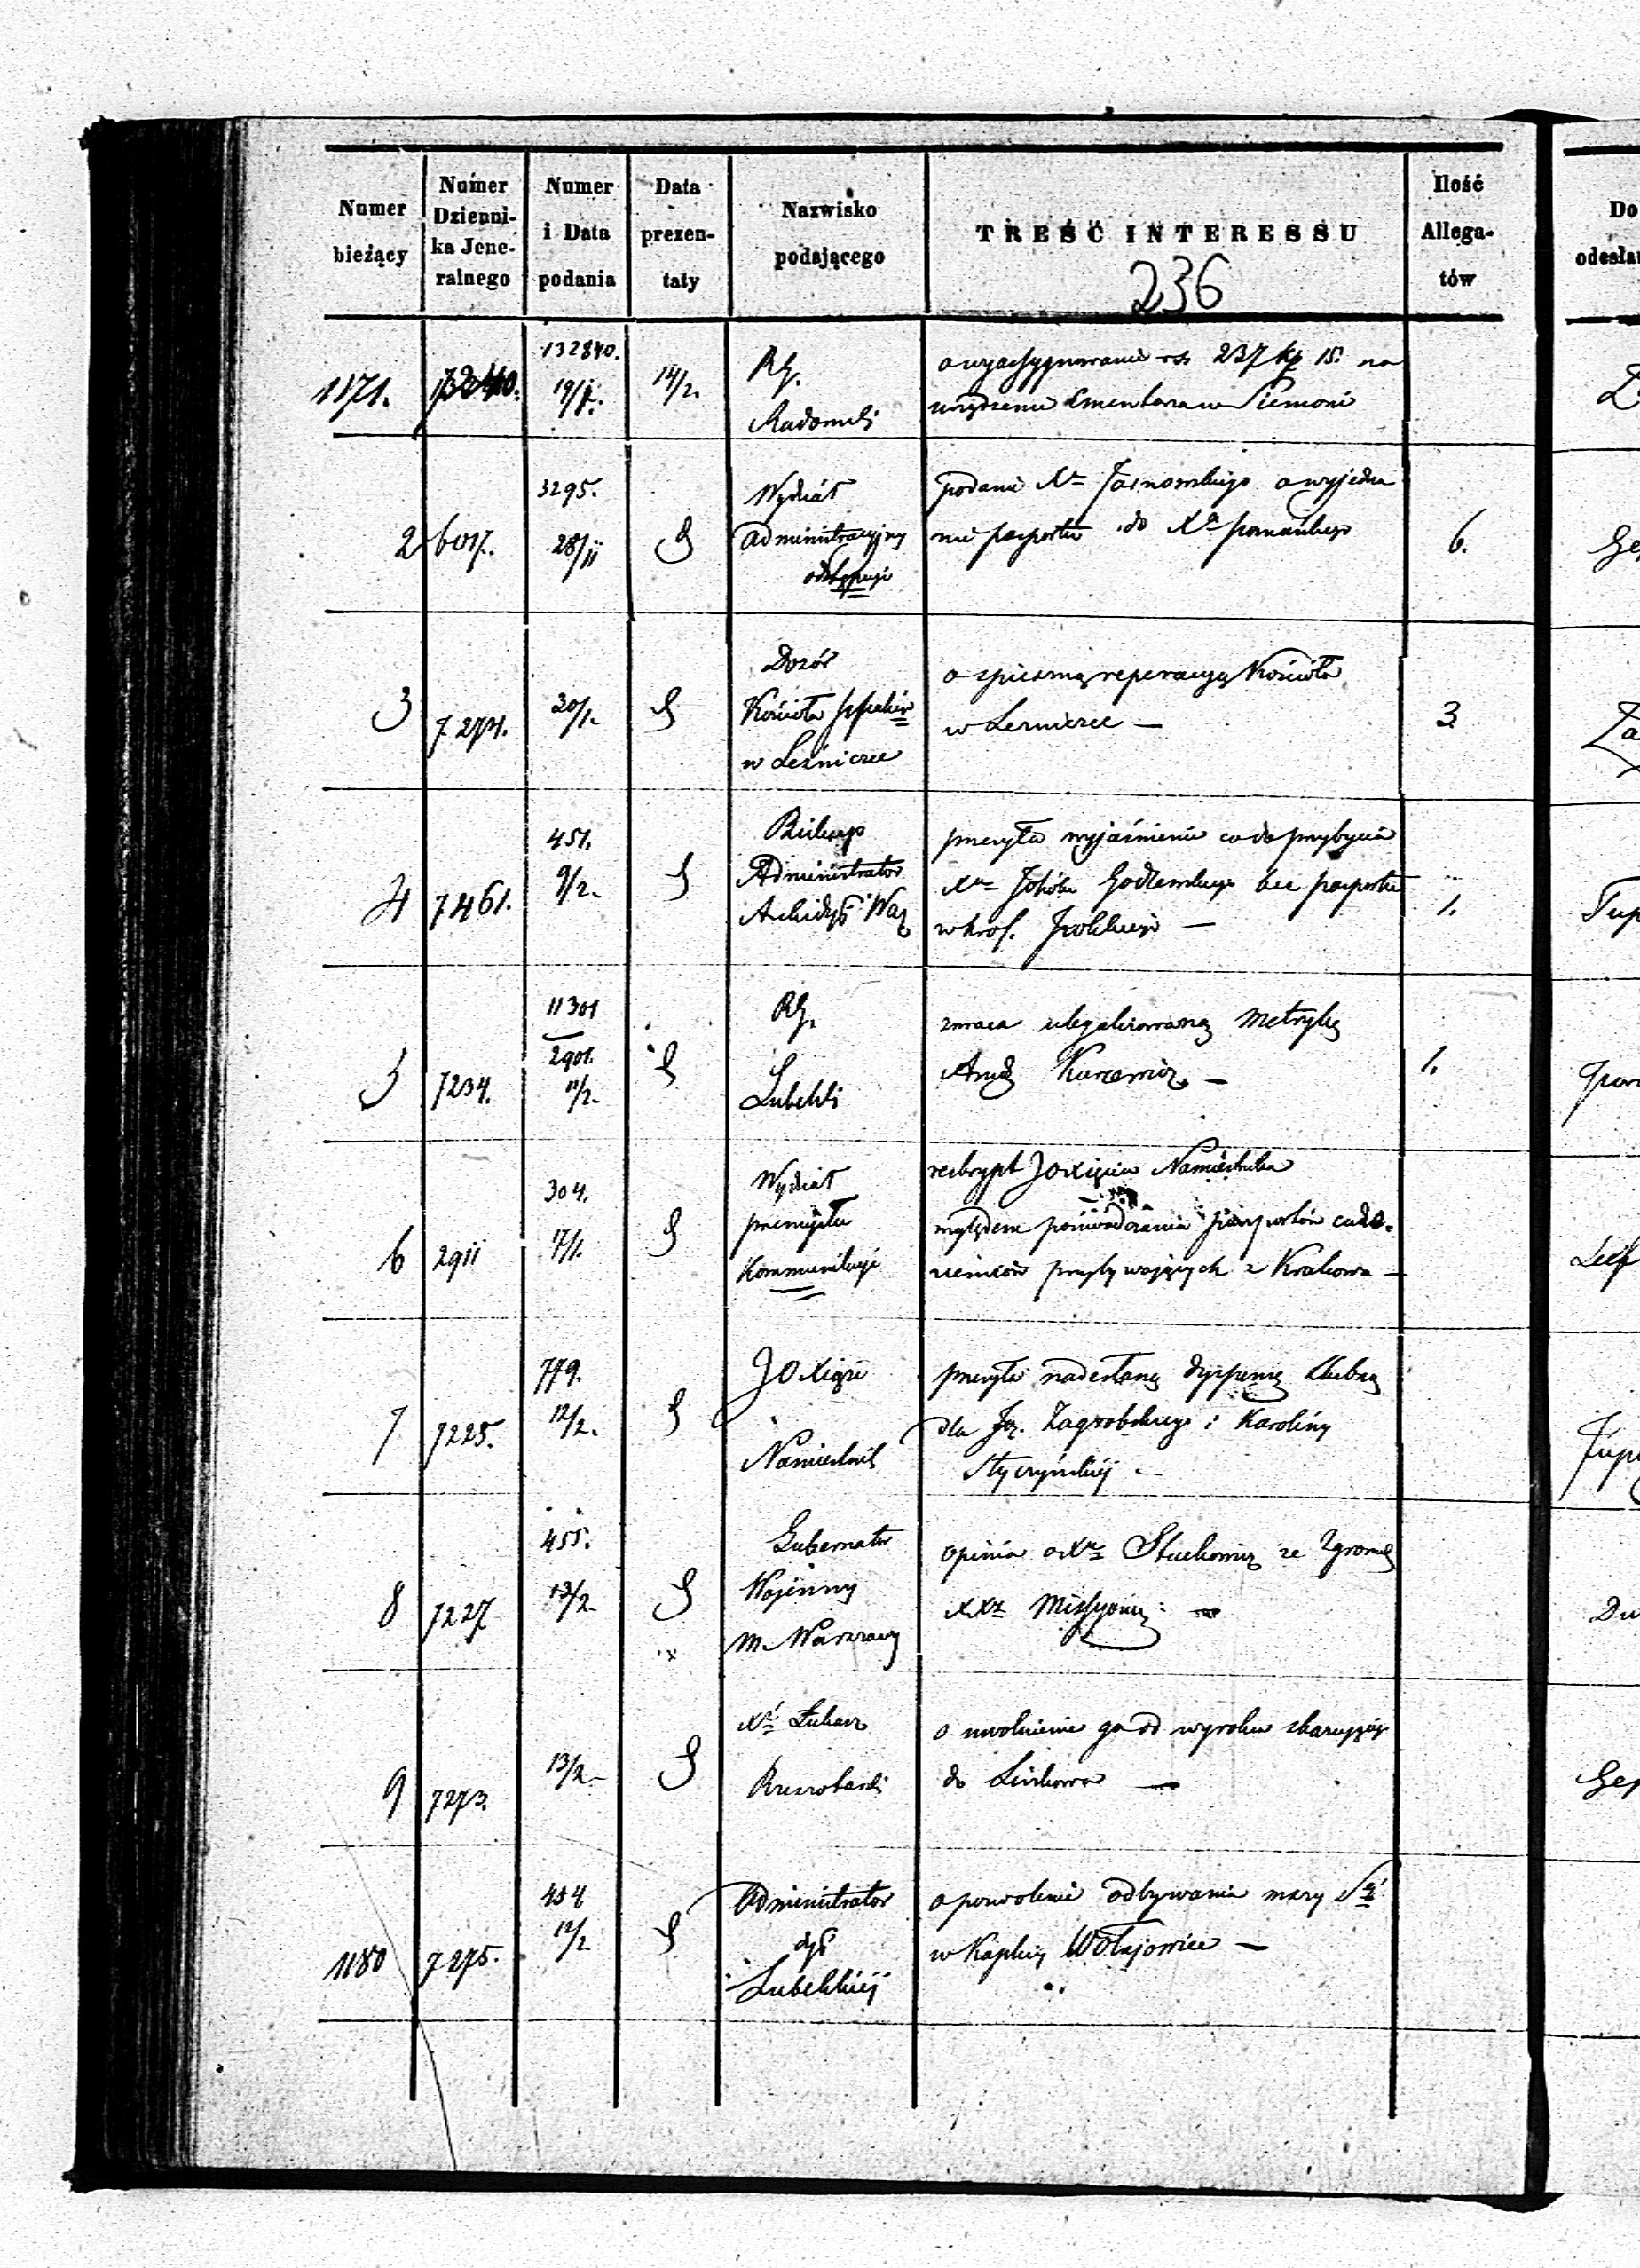 Numer
bieżący
Numer
Dzienni-
ka Jene-
ralnego
Numer
i Data
podania
Data
prezen-
taty
Nazwisko
podającego
TREŚĆ INTERESSU
236
Ilość
Allega-
tów
Do
odesłan
1171.
132840.
14/2.
RG.
Radomski
o wyassygnowanie rs. 237 kp 15. na
urządzenie Cmentarza w Siemoni
2
6017.
3295.
28/11
Wydział
Administracyjny
odstępuje
podanie Xa o wyjedna
nie pasportu do Xa Poznańskiego
6.
3
7271.
30/1.
Dozór
Kościoła
w Leśnicze
o spieszną reperacyą Kościoła
w
3
4
7461.
451.
9/2.
Biskup
Administrator
Archidyec War
przesyła wyjaśnienie co do przybycia
Xa Godlewskiego bez pasportu
w Król. Polskiego
1.
5
7234.
11301
2901.
11/2.
RG.
Lubelski
zwraca ulegalizowaną Metrykę
1.
6
2911
304.
17/1.
Wydział
przemysłu
Kommunikuje
reskrypt JO Xięcia Namiestnika
względem poświadczania pasportów cudzo-
ziemców przybywających z Krakowa
7
7225.
779.
12/2.
JO Xiąże
Namiestnik
przesyła nadesłaną dyspensę ślubną
dla Zagrobskiego i Karoliny
Styczyńskiej
8
7227
455.
13/2.
Gubernator
Wojenny
m. Warszawy
opinia o Xu ze Zgrom
XXy Missyona
Du
9
7273.
13/2
Xd Łukasz
o uwolnienie go od wyroku skazującego
do
1180
7275.
454
12/2
Administrator
dyec
Lubelskiej
o pozwolenie odbywania mszy Sej
w Kaplicy